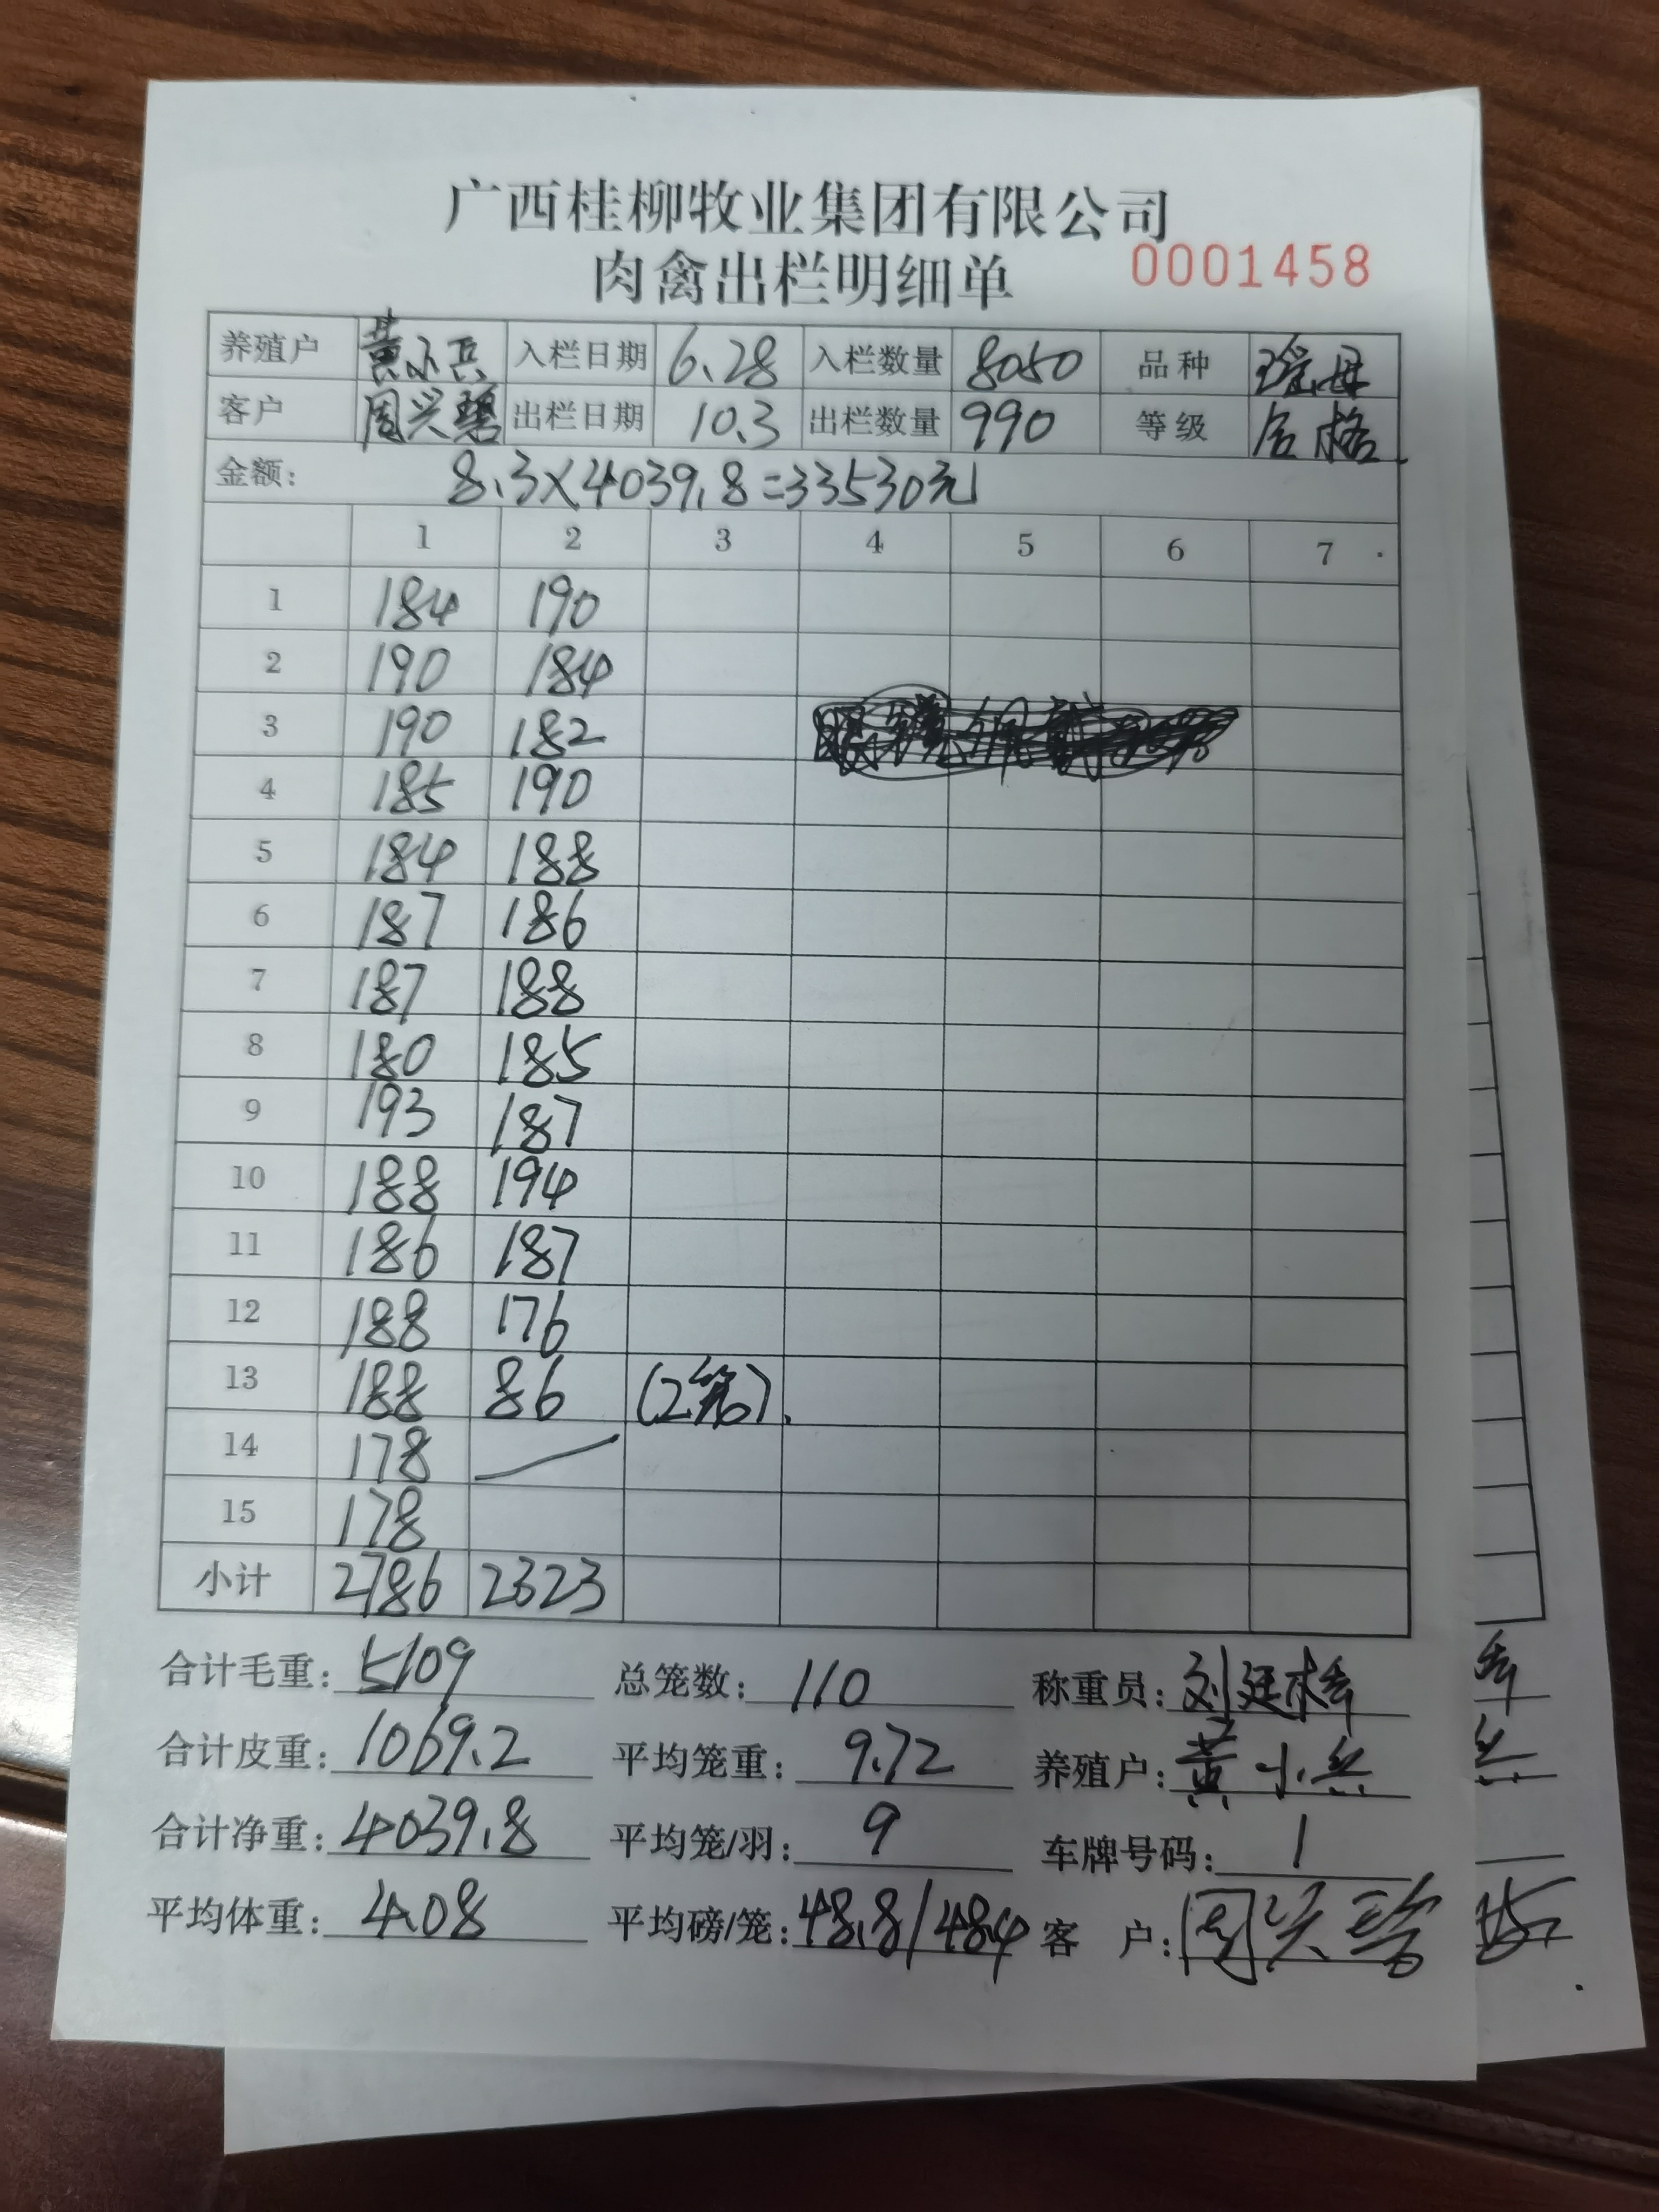 广西桂柳牧业集团有限公司
肉禽出栏明细单 0001458
养殖户 黄小兵 入栏日期 6.28 入栏数量 8050 品种 瑶母
客户 周兴碧 出栏日期 10.3 出栏数量 990 等级 合格
金额: 8.3×4039.8=33530元
1 2 3 4 5 6 7
1 184 190
2 190 184
3 190 182
4 185 190
5 184 188
6 187 186
7 187 188
8 180 185
9 193 187
10 188 194
11 186 187
12 188 176
13 188 86 (2笼).
14 178
15 178
小计 2786 2323
合计毛重: 5109 总笼数: 110 称重员: 刘廷
合计皮重: 1069.2 平均笼重: 9.72 养殖户: 黄小兵
合计净重: 4039.8 平均笼/羽: 9 车牌号码: 1
平均体重: 4.08 平均磅/笼: 48.8/48.4 客 户: 周兴碧